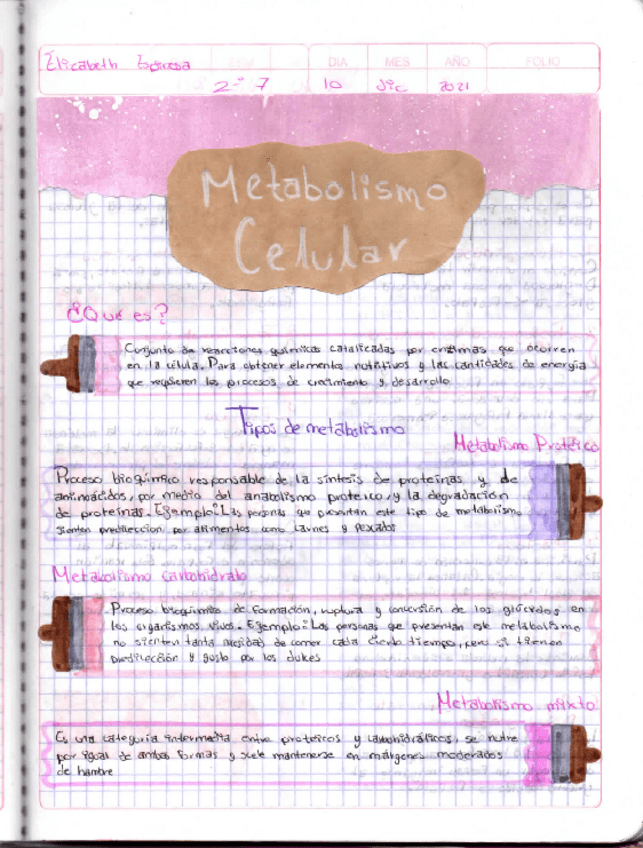 Elizabeth Esinosa
DIA MES AÑO FOLIO
2° 7 10 Dic 2021
Metabolismo
Celular
¿Qué es?
Conjunto de reacciones químicas catalizadas por enzimas que ocurren
en la célula. Para obtener elementos nutritivos y las cantidades de energía
que requieren los procesos de crecimiento y desarrollo
Tipos de metabolismo
Metabolismo Protéico
Proceso bioquímico responsable de la síntesis de proteínas y de
aminoácidos, por medio del anabolismo proteico, y la degradación
de proteínas. Ejemplo: Las personas que presentan este tipo de metabolismo
sienten predilección por alimentos como carnes y pescados
Metabolismo carbohidrato
Proceso bioquímico de formación, ruptura y conversión de los glúcidos en
los organismos vivos. Ejemplo: Las personas que presentan este metabolismo
no sienten tanta necesidad de comer cada cierto tiempo, pero si tienen
predilección y gusto por los dulces
Metabolismo mixto
Es una categoría intermedia entre proteicos y carbohidráticos, se nutre
por igual de ambas formas y suele mantenerse en márgenes moderados
de hambre